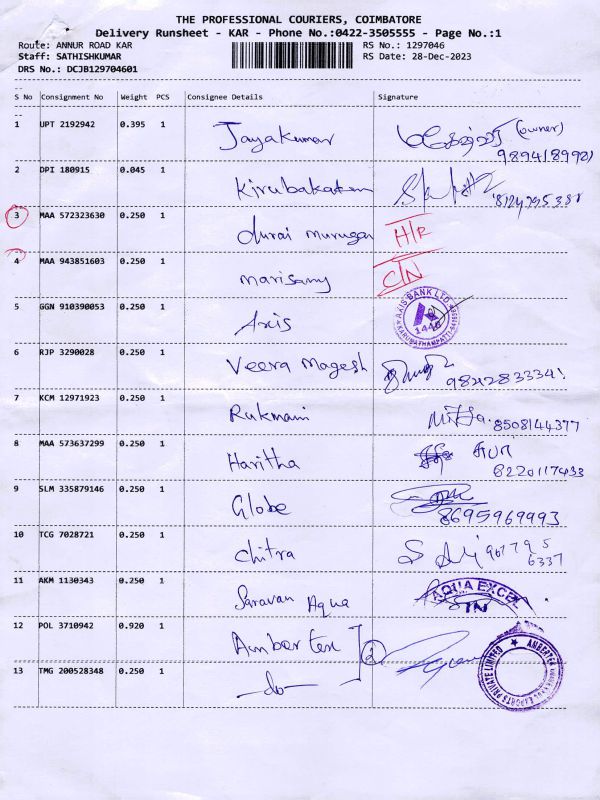 THE PROFESSIONAL COURIERS, COIMBATORE
Delivery Runsheet - KAR - Phone No.:0422-3505555 - Page No.:1
Route: ANNUR ROAD KAR RS No.: 1297046
Staff: SATHISHKUMAR RS Date: 28-Dec-2023
DRS No.: DCJB129704601
S No Consignment No Weight PCS Consignee Details Signature
1 UPT 2192942 0.395 1 Jayakumar (owner)
2 DPI 180915 0.045 1 Kirubakaran
3 MAA 572323630 0.250 1 durai murugan H/R
4 MAA 943851603 0.250 1 marisamy C/N
5 GGN 910390053 0.250 1 Axis AXIS BANK LTD. 1446
6 RJP 3290028 0.250 1 Veera Magesh
7 KCM 12971923 0.250 1 Rukmani 8508144377
8 MAA 573637299 0.250 1 Haritha 8220117433
9 SLM 335879146 0.250 1 Globe 8695969993
10 TCG 7028721 0.250 1 Chitra
11 AKM 1130343 0.250 1 Saravan Aqua AQUA EXCEL
12 POL 3710942 0.920 1 Amber tex 2
13 TMG 200528348 0.250 1 -do- PRIVATE LIMITED